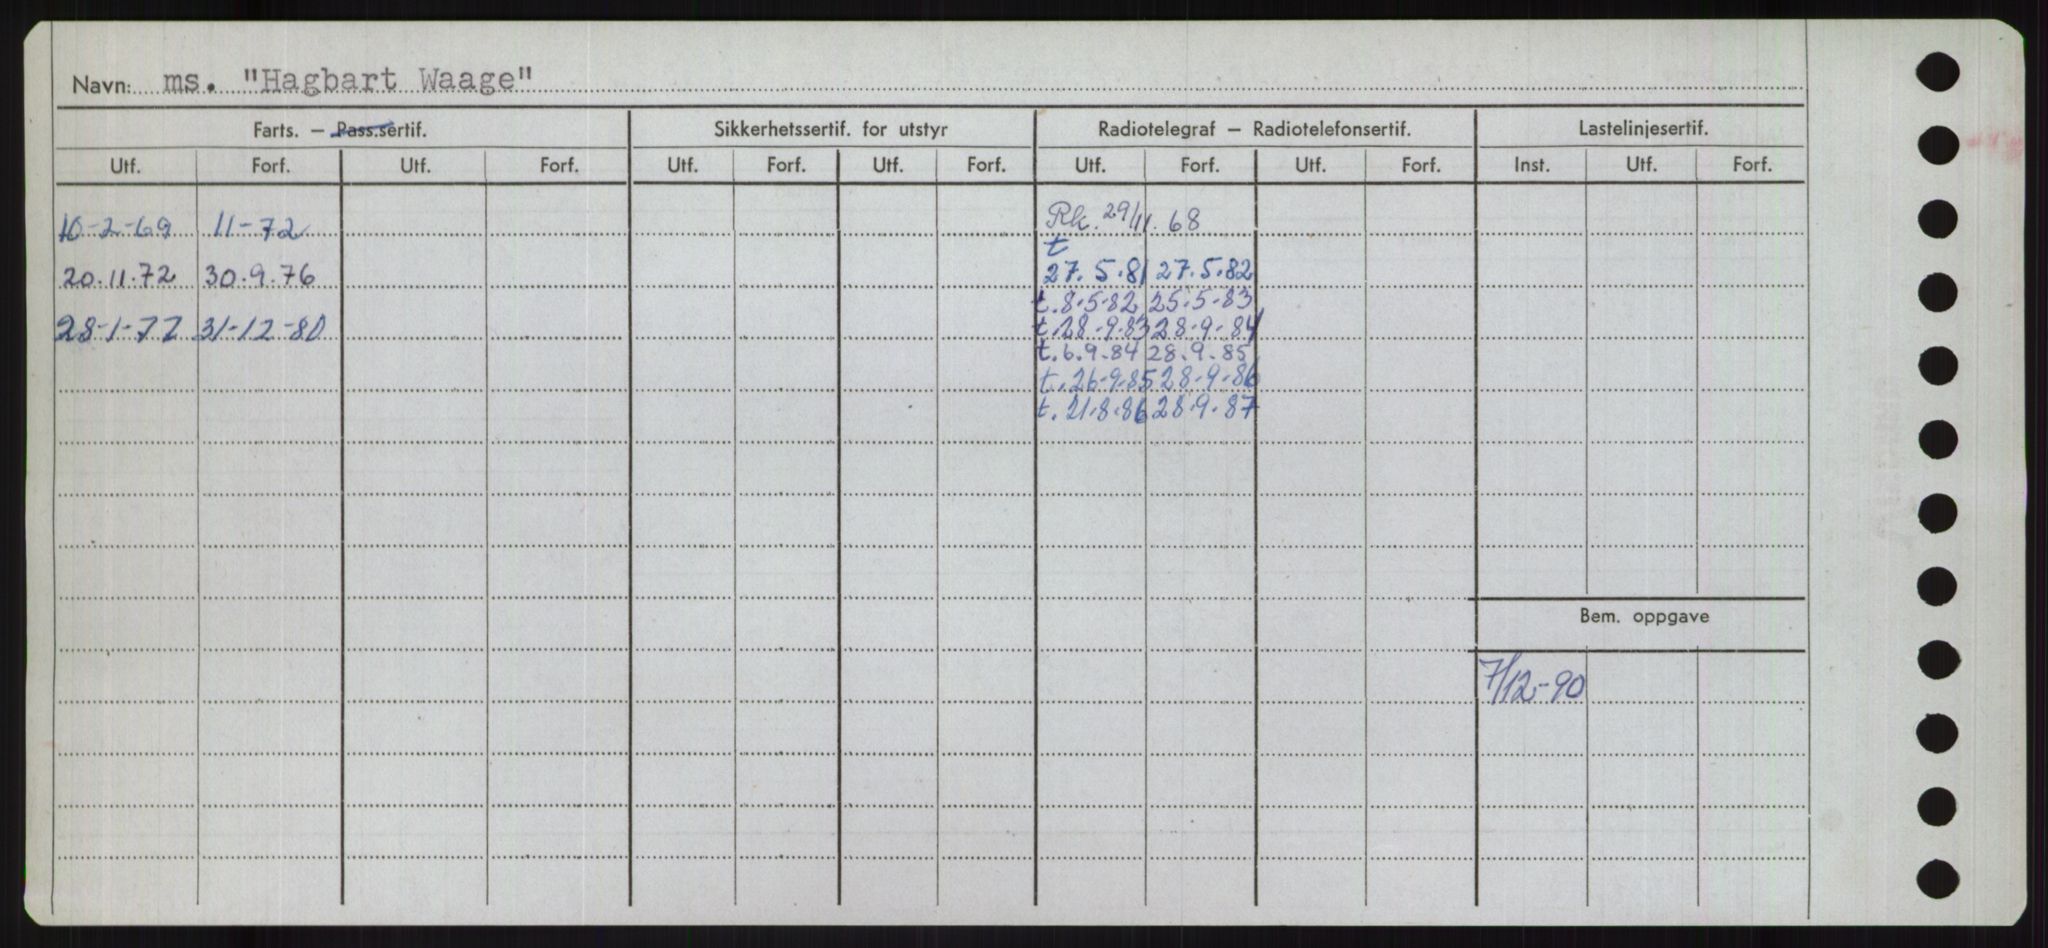 Navn: ms. "Hagbart Waage"
Farts. – Pass.sertif. Sikkerhetssertif. for utstyr Radiotelegraf – Radiotelefonsertif. Lastelinjesertif.
Utf. Forf. Utf. Forf. Utf. Forf. Utf. Forf. Utf. Forf. Utf. Forf. Inst. Utf. Forf.
10-2-69 11-72 Rk. 29/11. 68
t
20.11.72 30.9.76 27.5.81 27.5.82
t. 8.5.82 25.5.83
28-1-77 31-12-80 t. 28.9.83 28.9.84
t. 6.9.84 28.9.85
t. 26.9.85 28.9.86
t. 21.8.86 28.9.87
Bem. oppgave
7/12-90